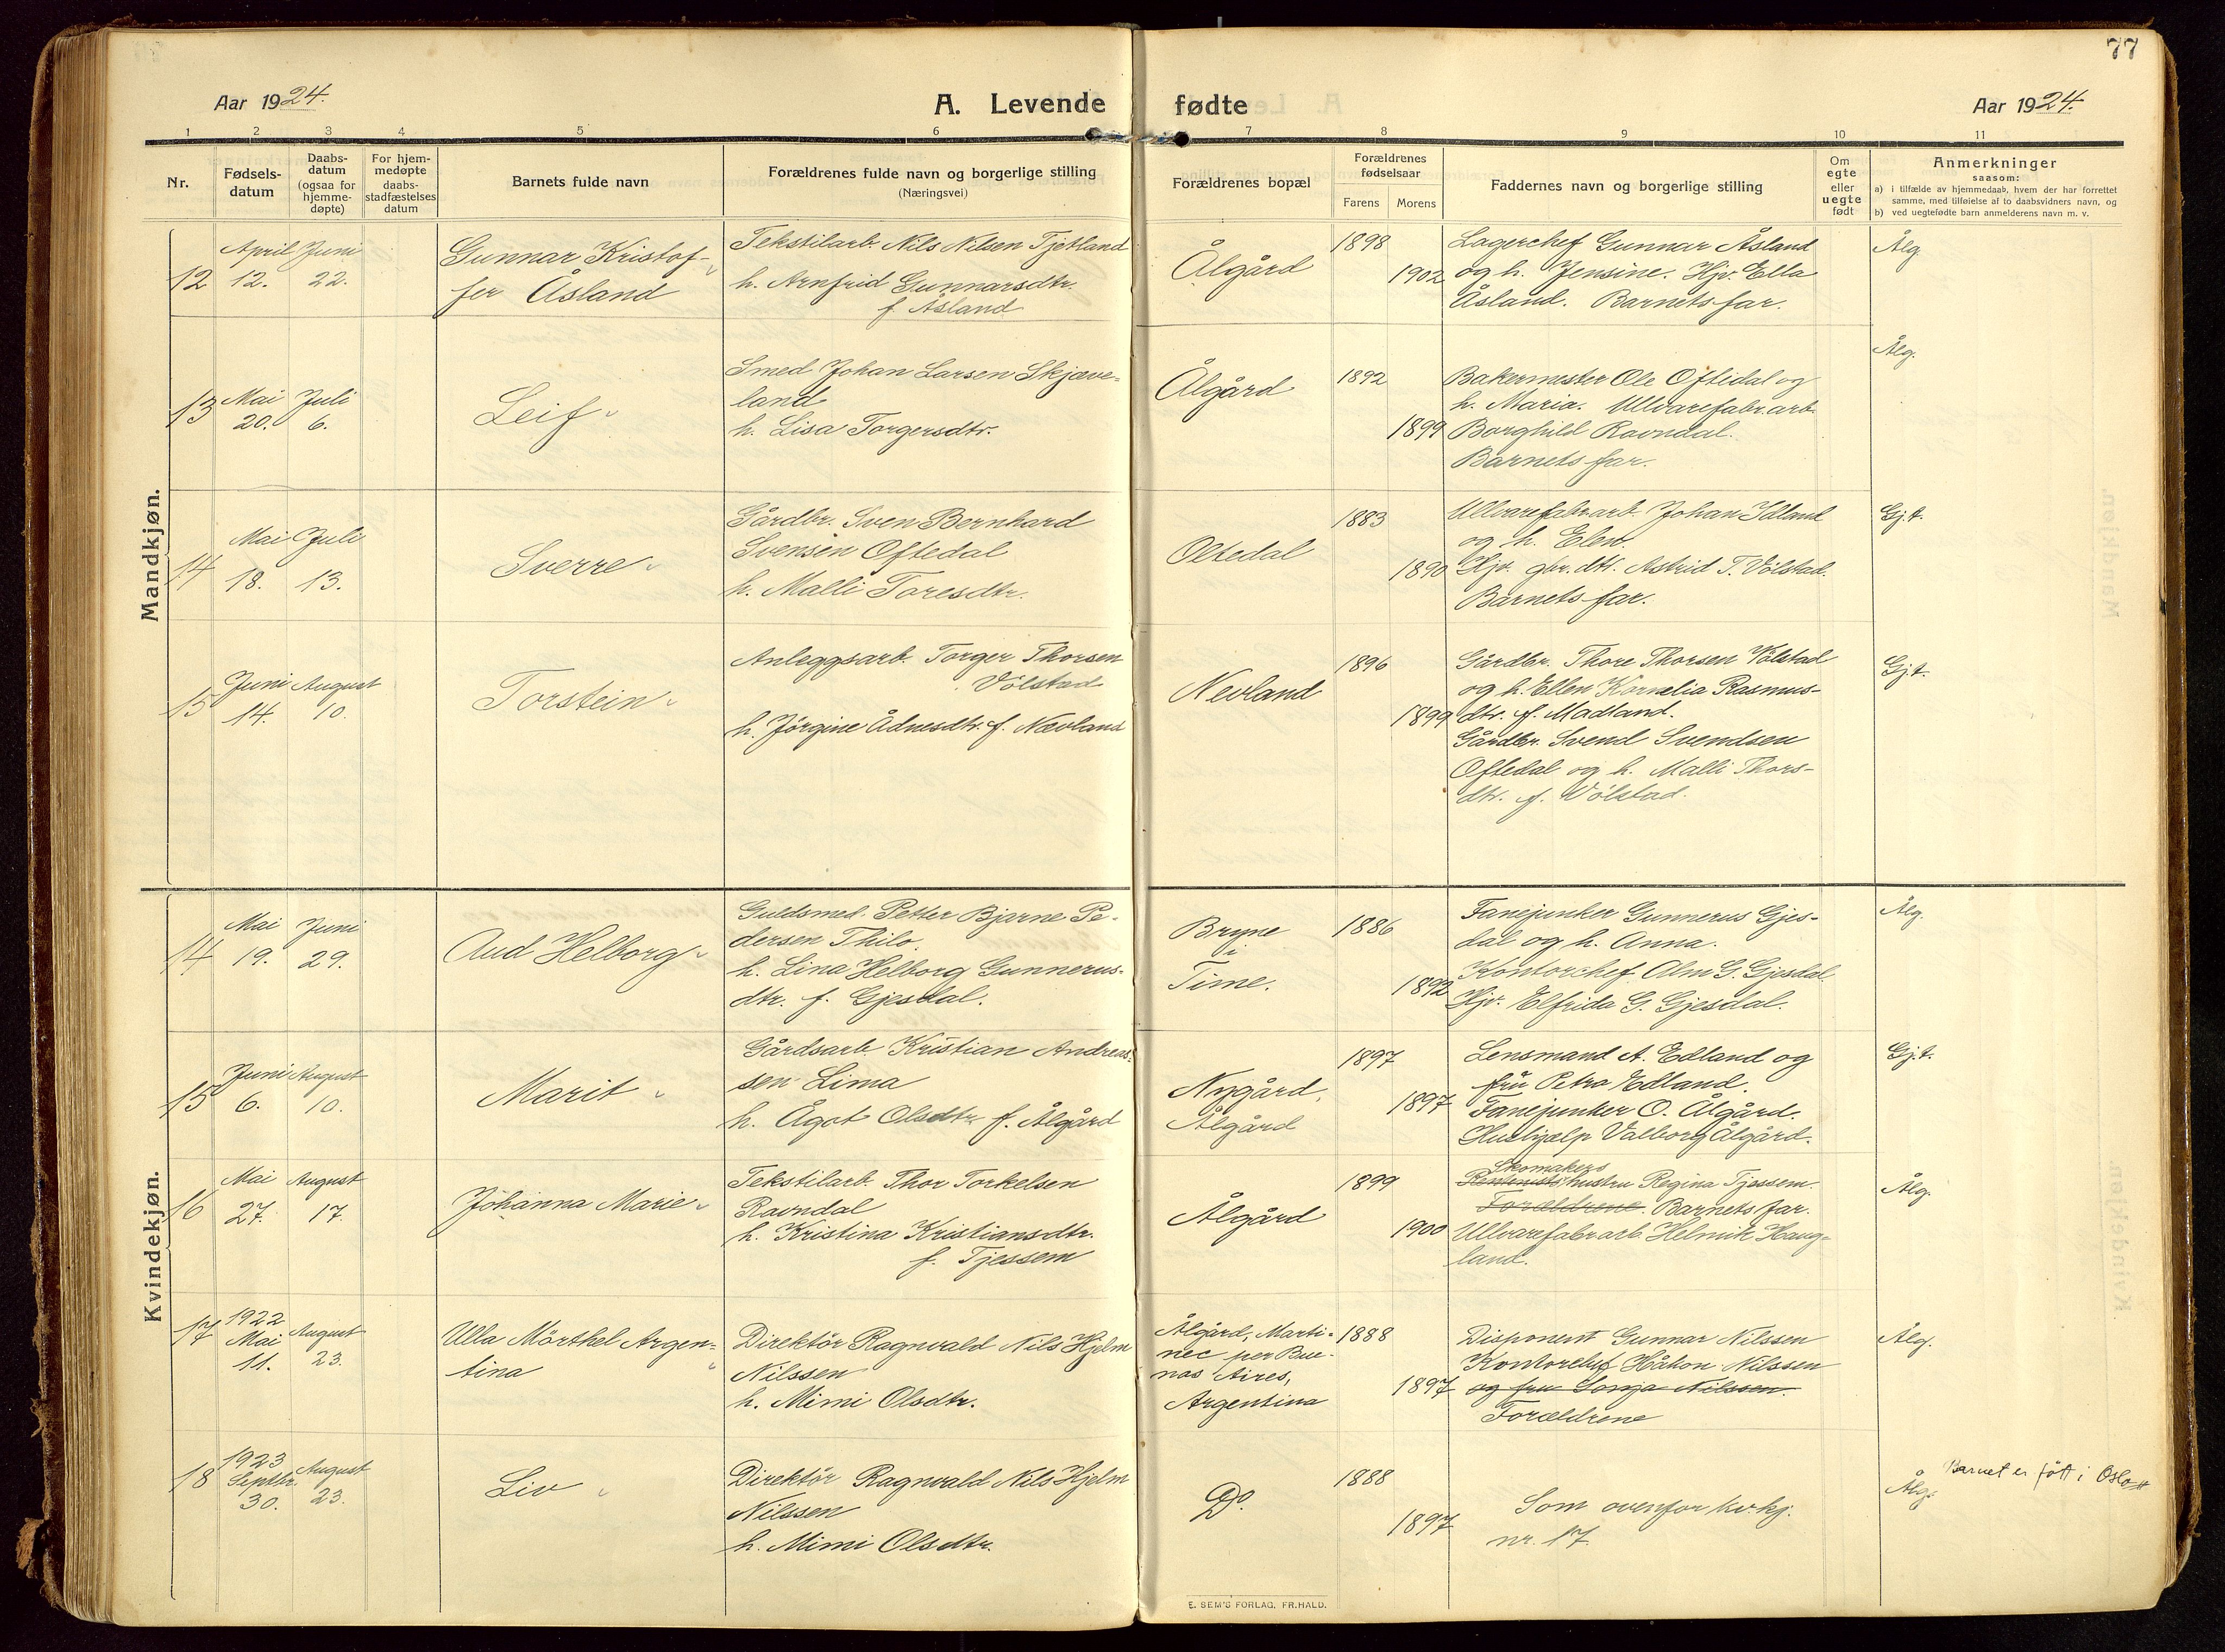 77
Aar 1924.
A. Levende fødte
Aar 1924.
1 2 3 4 5 6 7 8 9 10 11
Nr.
Fødsels-
datum
Daabs-
datum
(ogsaa for
hjemme-
døpte)
For hjem-
medøpte
daabs-
stadfæstelses
datum
Barnets fulde navn
Forældrenes fulde navn og borgerlige stilling
(Næringsvei)
Forældrenes bopæl
Forældrenes
fødselsaar
Farens Morens
Faddernes navn og borgerlige stilling
Om
egte
eller
uegte
født
Anmerkninger
saasom:
a) i tilfælde av hjemmedaab, hvem der har forrettet
samme, med tilføielse af to daabsvidners navn, og
b) ved uegtefødte barn anmelderens navn m. v.
Mandkjøn.
12
April
12.
Juni
22.
Gunnar Kristof-
fer Åsland
Tekstilarb. Nils Nilsen Tjetland
h. Arnfrid Gunnarsdtr.
f. Åsland
Ålgård
1898
1902
Lagerchef Gunnar Åsland
og h. Jensine. Hjv. Ella
Åsland. Barnets far.
Ålg.
13
Mai
20.
Juli
6.
Leif
Smed Johan Larsen Skjæve-
land
h. Lisa Torgersdtr.
Ålgård
1892
1899
Bakermester Ole Oftidal og
h. Maria. Ullvarefabr.arb.
Borghild Ravndal.
Barnets far.
Ålg.
14
Mai
18.
Juli
13.
Sverre
Gårdbr. Sven Bernhard
Svensen Oftedal
h. Malli Toresdtr.
Oltedal
1883
1890
Ullvarefabr.arb. Johan Idland
og h. Elen.
Hjv. gbr. dtr. Astrid T. Völstad.
Barnets far.
Gj.t.
15
Juni
14.
August
10.
Torstein
Anleggsarb. Torger Thorsen
Völstad
h. Jörgine Ådnesdtr. f. Nævland
Nevland
1896
1899
Gårdbr. Thore Thorsen Völstad
og h. Ellen Kornelia Rasmus-
dtr. f. Madland.
Gårdbr. Svend Svendsen
Oftedal og h. Malli Thors-
dtr. f. Völstad.
Gj.t.
Kvindekjøn.
14
Mai
19.
Juni
29.
Aud Helborg
Guldsmed. Petter Bjarne Pe-
dersen Thilo.
h. Lina Helborg Gunnerus-
dtr. f. Gjesdal.
Bryne
i
Time.
1886
1892
Fanejunker Gunnerus Gjes-
dal og h. Anna.
Kontorchef Alm G. Gjesdal.
Hjv. Elfrida G. Gjesdal.
Ålg.
15
Juni
6.
August
10.
Marit
Gårdsarb. Kristian Andreas-
sen Lima
h. Ågot Olsdtr. f. Ålgård
Nygård,
Ålgård
1897
1897
Lensmand A. Edland og
fru Petra Edland.
Fanejunker O. Ålgård.
Hushjælp Valborg Ålgård.
Gj.t.
16
Mai
27.
August
17.
Johanna Marie
Tekstilarb. Thor Torkelsen
Ravndal
h. Kristina Kristiansdtr.
f. Tjessem
Ålgård
1899
1900
Skomakers
hustru Regina Tjessem.
Forældrene. Barnets far.
Ullvarefabr.arb. Helmik Haug-
land.
Ålg.
17
1922
Mai
11.
August
23.
Ulla Mörthel Argen-
tina
Direktör Ragnvald Nils Hjelm
Nilssen
h. Mimi Olsdtr.
Ålgård, Marti-
nec per Bue-
nos Aires,
Argentina
1888
1897
Disponent Gunnar Nilssen
Kontorchef Håkon Nilssen
og fru Sonja Nilssen.
Forældrene
Ålg.
18
1923
Septbr.
30.
August
23.
Liv
Direktör Ragnvald Nils Hjelm
Nilssen
h. Mimi Olsdtr.
Do.
1888
1897
Som ovenfor kv.kj.
nr. 17.
Barnet er fött i Oslo
Ålg.
E. SEM'S FORLAG, FR.HALD.